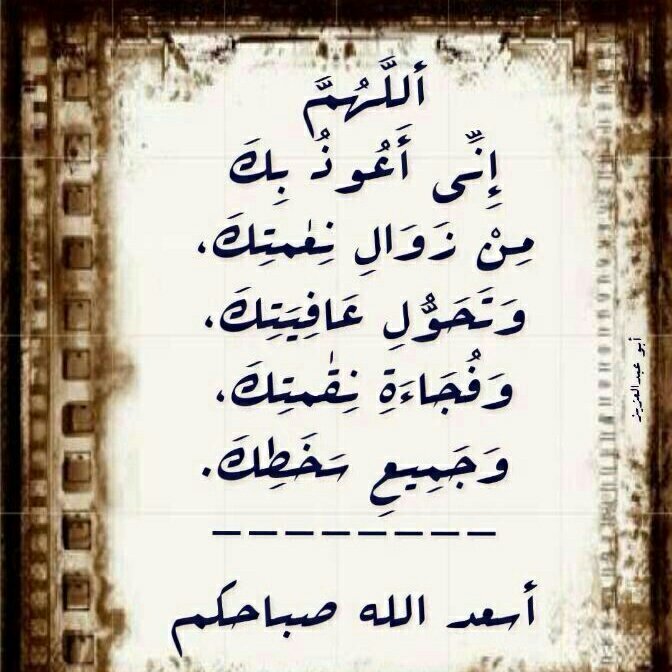 أللَّهُمَّ
إِنِّى أَعُوذُ بِكَ
مِنْ زَوَالِ نِعْمَتِكَ،
وَتَحَوُّلِ عَافِيَتِكَ،
وَفُجَاءَةِ نِقْمَتِكَ،
وَجَمِيعِ سَخَطِكَ.
أسعد الله صباحكم
أبو عبدالعزيز